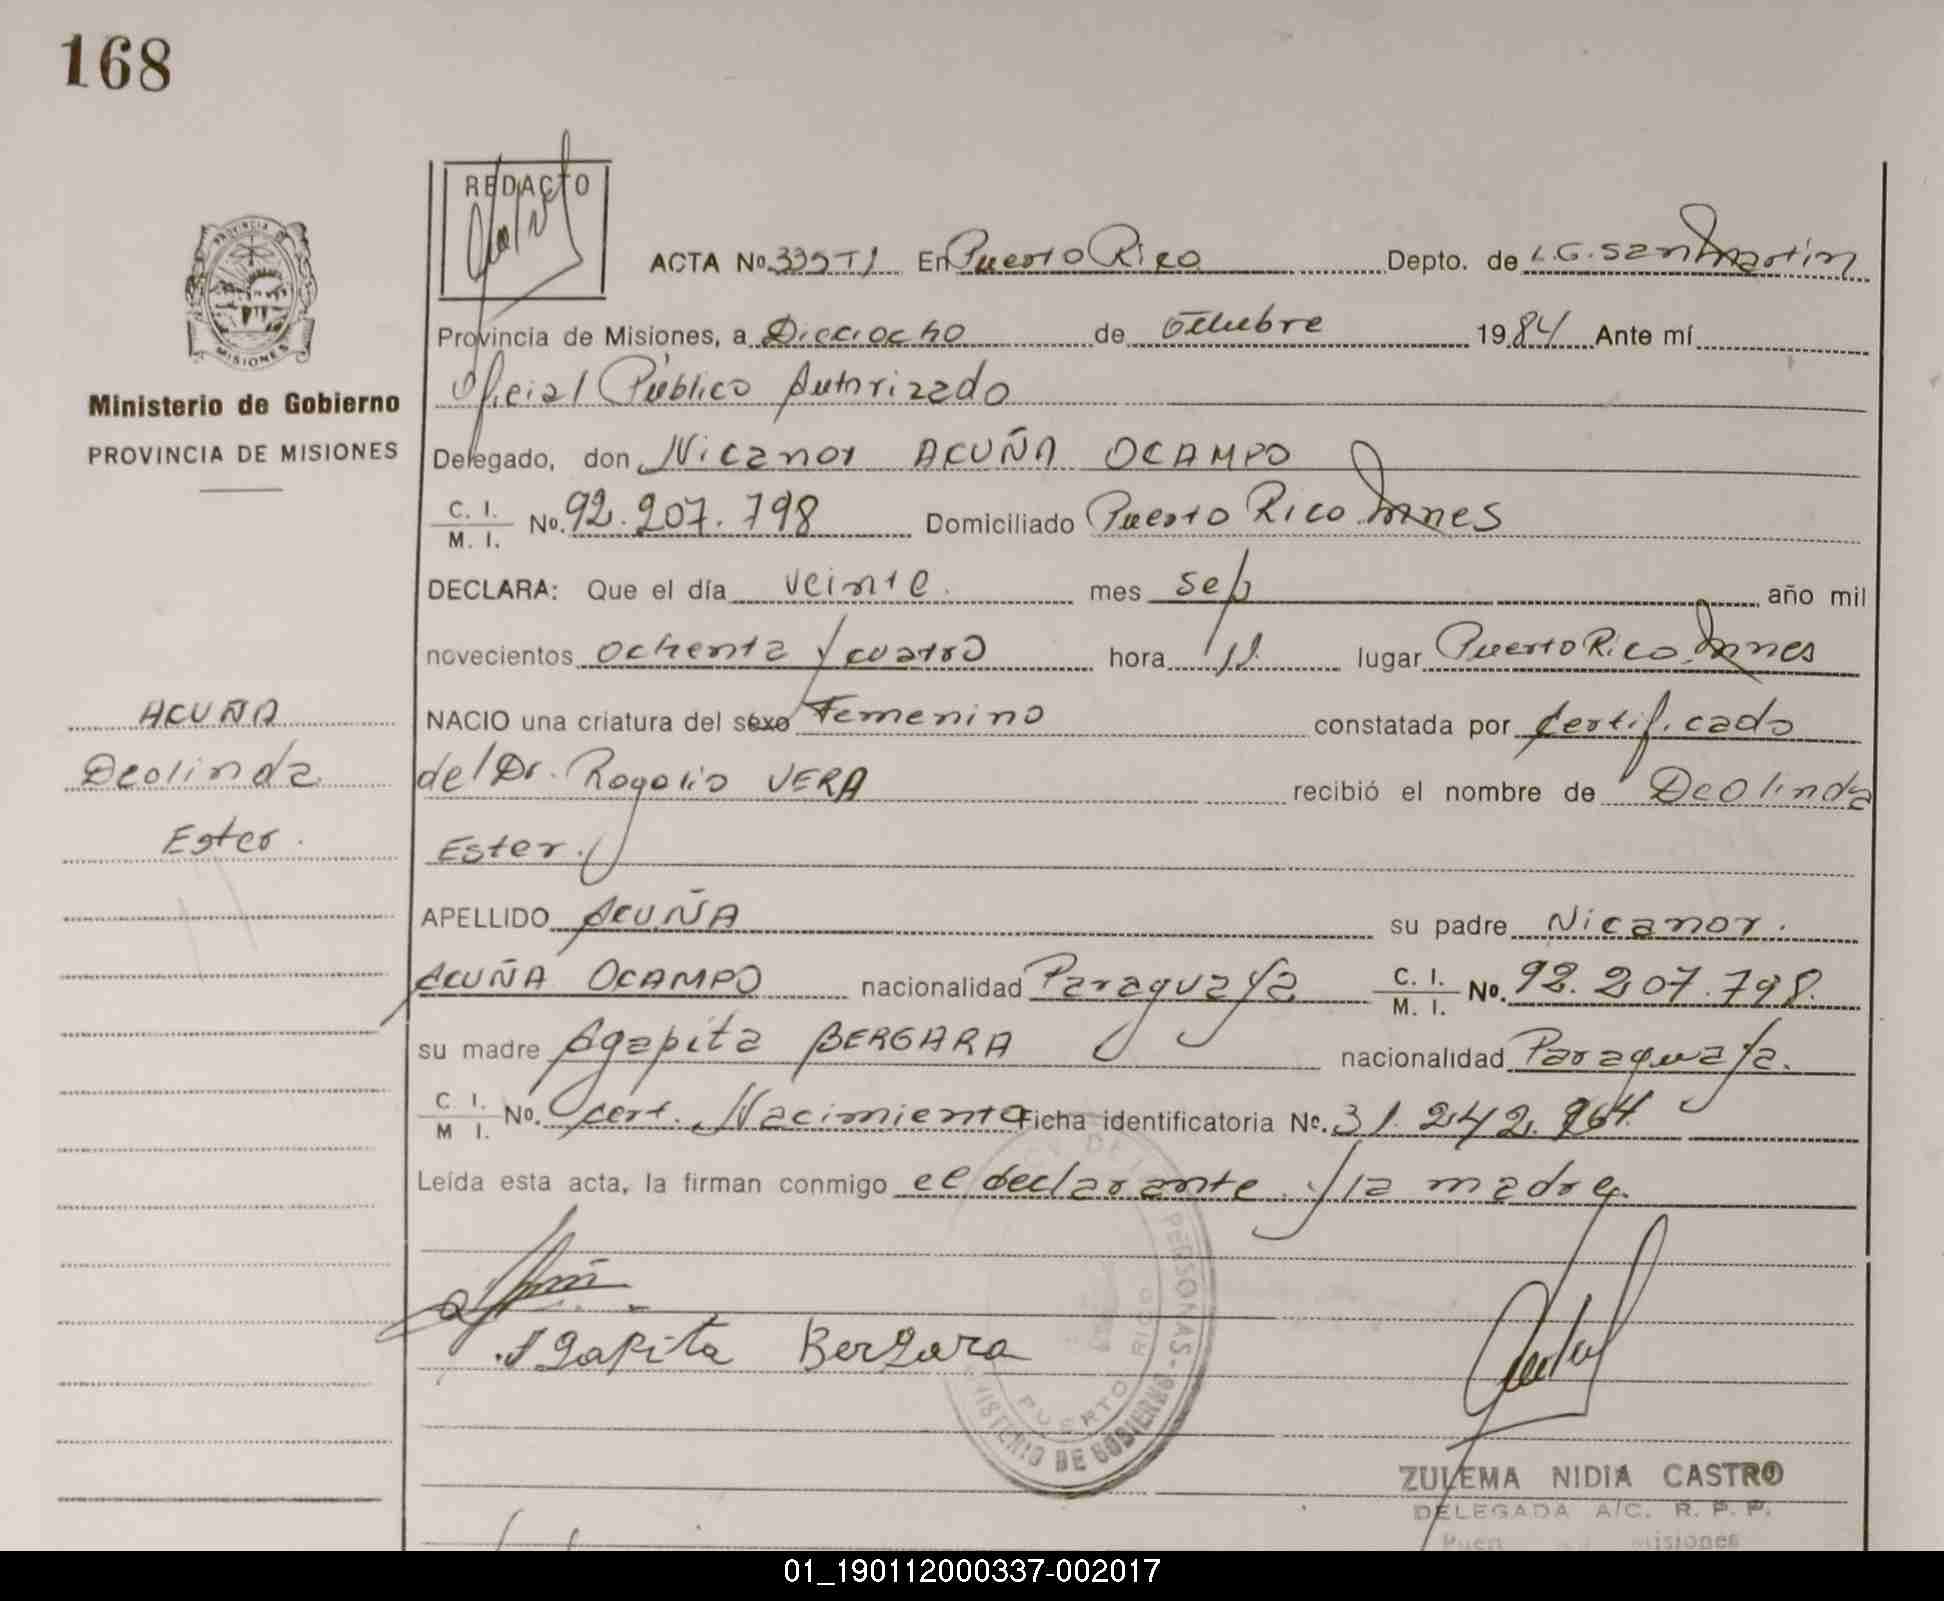 168
REDACTO
PROVINCIA DE
MISIONES
Ministerio de Gobierno
PROVINCIA DE MISIONES
ACTA No. 335T1 En Puerto Rico Depto. de L.G. San Martin
Provincia de Misiones, a Dieciocho de Octubre 1984 Ante mí
Oficial Público Autorizado
Delegado, don Nicanor ACUÑA OCAMPO
C. I. / M. I. No. 92.207.798 Domiciliado Puerto Rico Mnes
DECLARA: Que el día veinte. mes sep año mil
novecientos ochenta y cuatro hora 11. lugar Puerto Rico. Mnes
NACIO una criatura del sexo Femenino constatada por Certificado
del Dr. Rogelio VERA recibió el nombre de Deolinda
Ester.
APELLIDO ACUÑA su padre Nicanor.
ACUÑA OCAMPO nacionalidad Paraguaya C. I. / M. I. No. 92.207.798.
su madre Agapita BERGARA nacionalidad Paraguaya.
C. I. / M. I. No. Cert. Nacimiento Ficha identificatoria No. 31.242.964.
Leída esta acta, la firman conmigo el declarante y la madre.
ACUÑA
Deolinda
Ester.
Agapita Bergara
PERSONAS -
MINISTERIO DE GOBIERNO
PUERTO RICO
ZULEMA NIDIA CASTRO
DELEGADA A/C. R. P. P.
Misiones
01_190112000337-002017